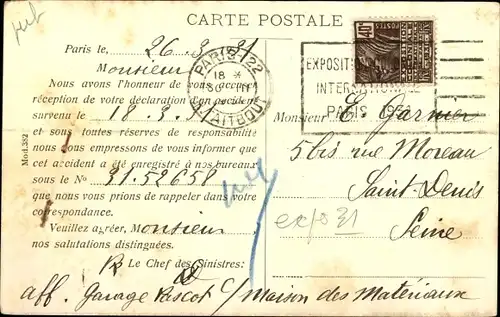 CARTE POSTALE
Paris le, 26.3.31
Monsieur
Nous avons l'honneur de vous accuser
réception de votre déclaration d'un accident
survenu le 18.3.31
et sous toutes réserves de responsabilité
nous nous empressons de vous informer que
cet accident a été enregistré à nos bureaux
sous le No 31.52658
que nous vous prions de rappeler dans votre
correspondance.
Veuillez agréer, Monsieur
nos salutations distinguées.
Le Chef des Sinistres:
aff. Garage Pascot C/ Maison des Matériaux
Mod.382
PARIS 22
18
R. TAITBOUT
EXPOSITION COLONIALE
INTERNATIONALE
PARIS 1931
40c
Monsieur E. Garnier
5 bis rue Moreau
Saint-Denis
Seine
expo 31